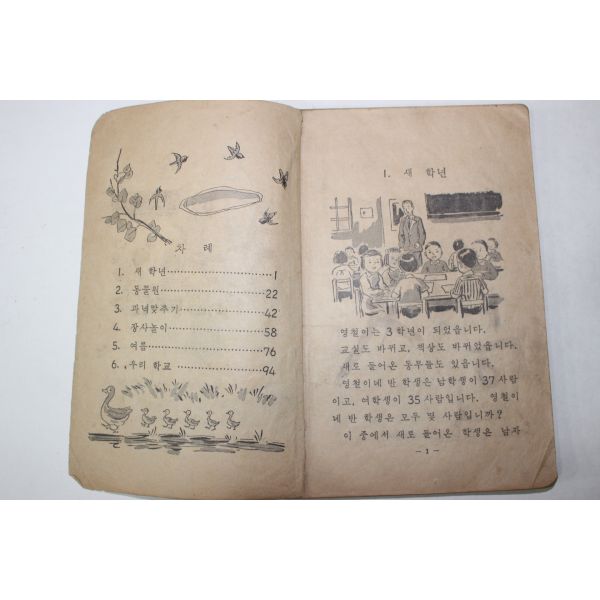 차 례
1. 새 학년 1
2. 동물원 22
3. 과녁맞추기 42
4. 장사놀이 58
5. 여름 76
6. 우리 학교 94
1. 새 학년
영철이는 3학년이 되었읍니다.
교실도 바뀌고, 책상도 바뀌었읍니다.
새로 들어온 동무들도 있읍니다.
영철이네 반 학생은 남학생이 37 사람
이고, 여학생이 35 사람입니다. 영철이
네 반 학생은 모두 몇 사람입니까?
이 중에서 새로 들어온 학생은 남자
— 1 —